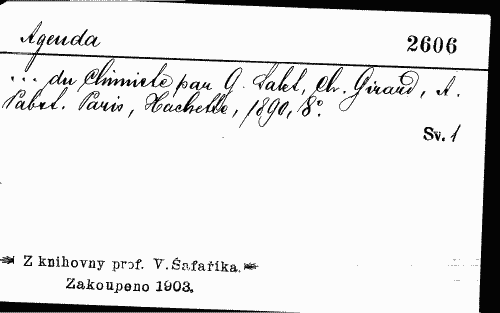 Agenda
2606
... du Chimiste par G. Salet, Ch. Girard, A.
Pabst. Paris, Hachette, 1890, 8°.
Sv. 1
Z knihovny prof. V. Šafaříka.
Zakoupeno 1903.